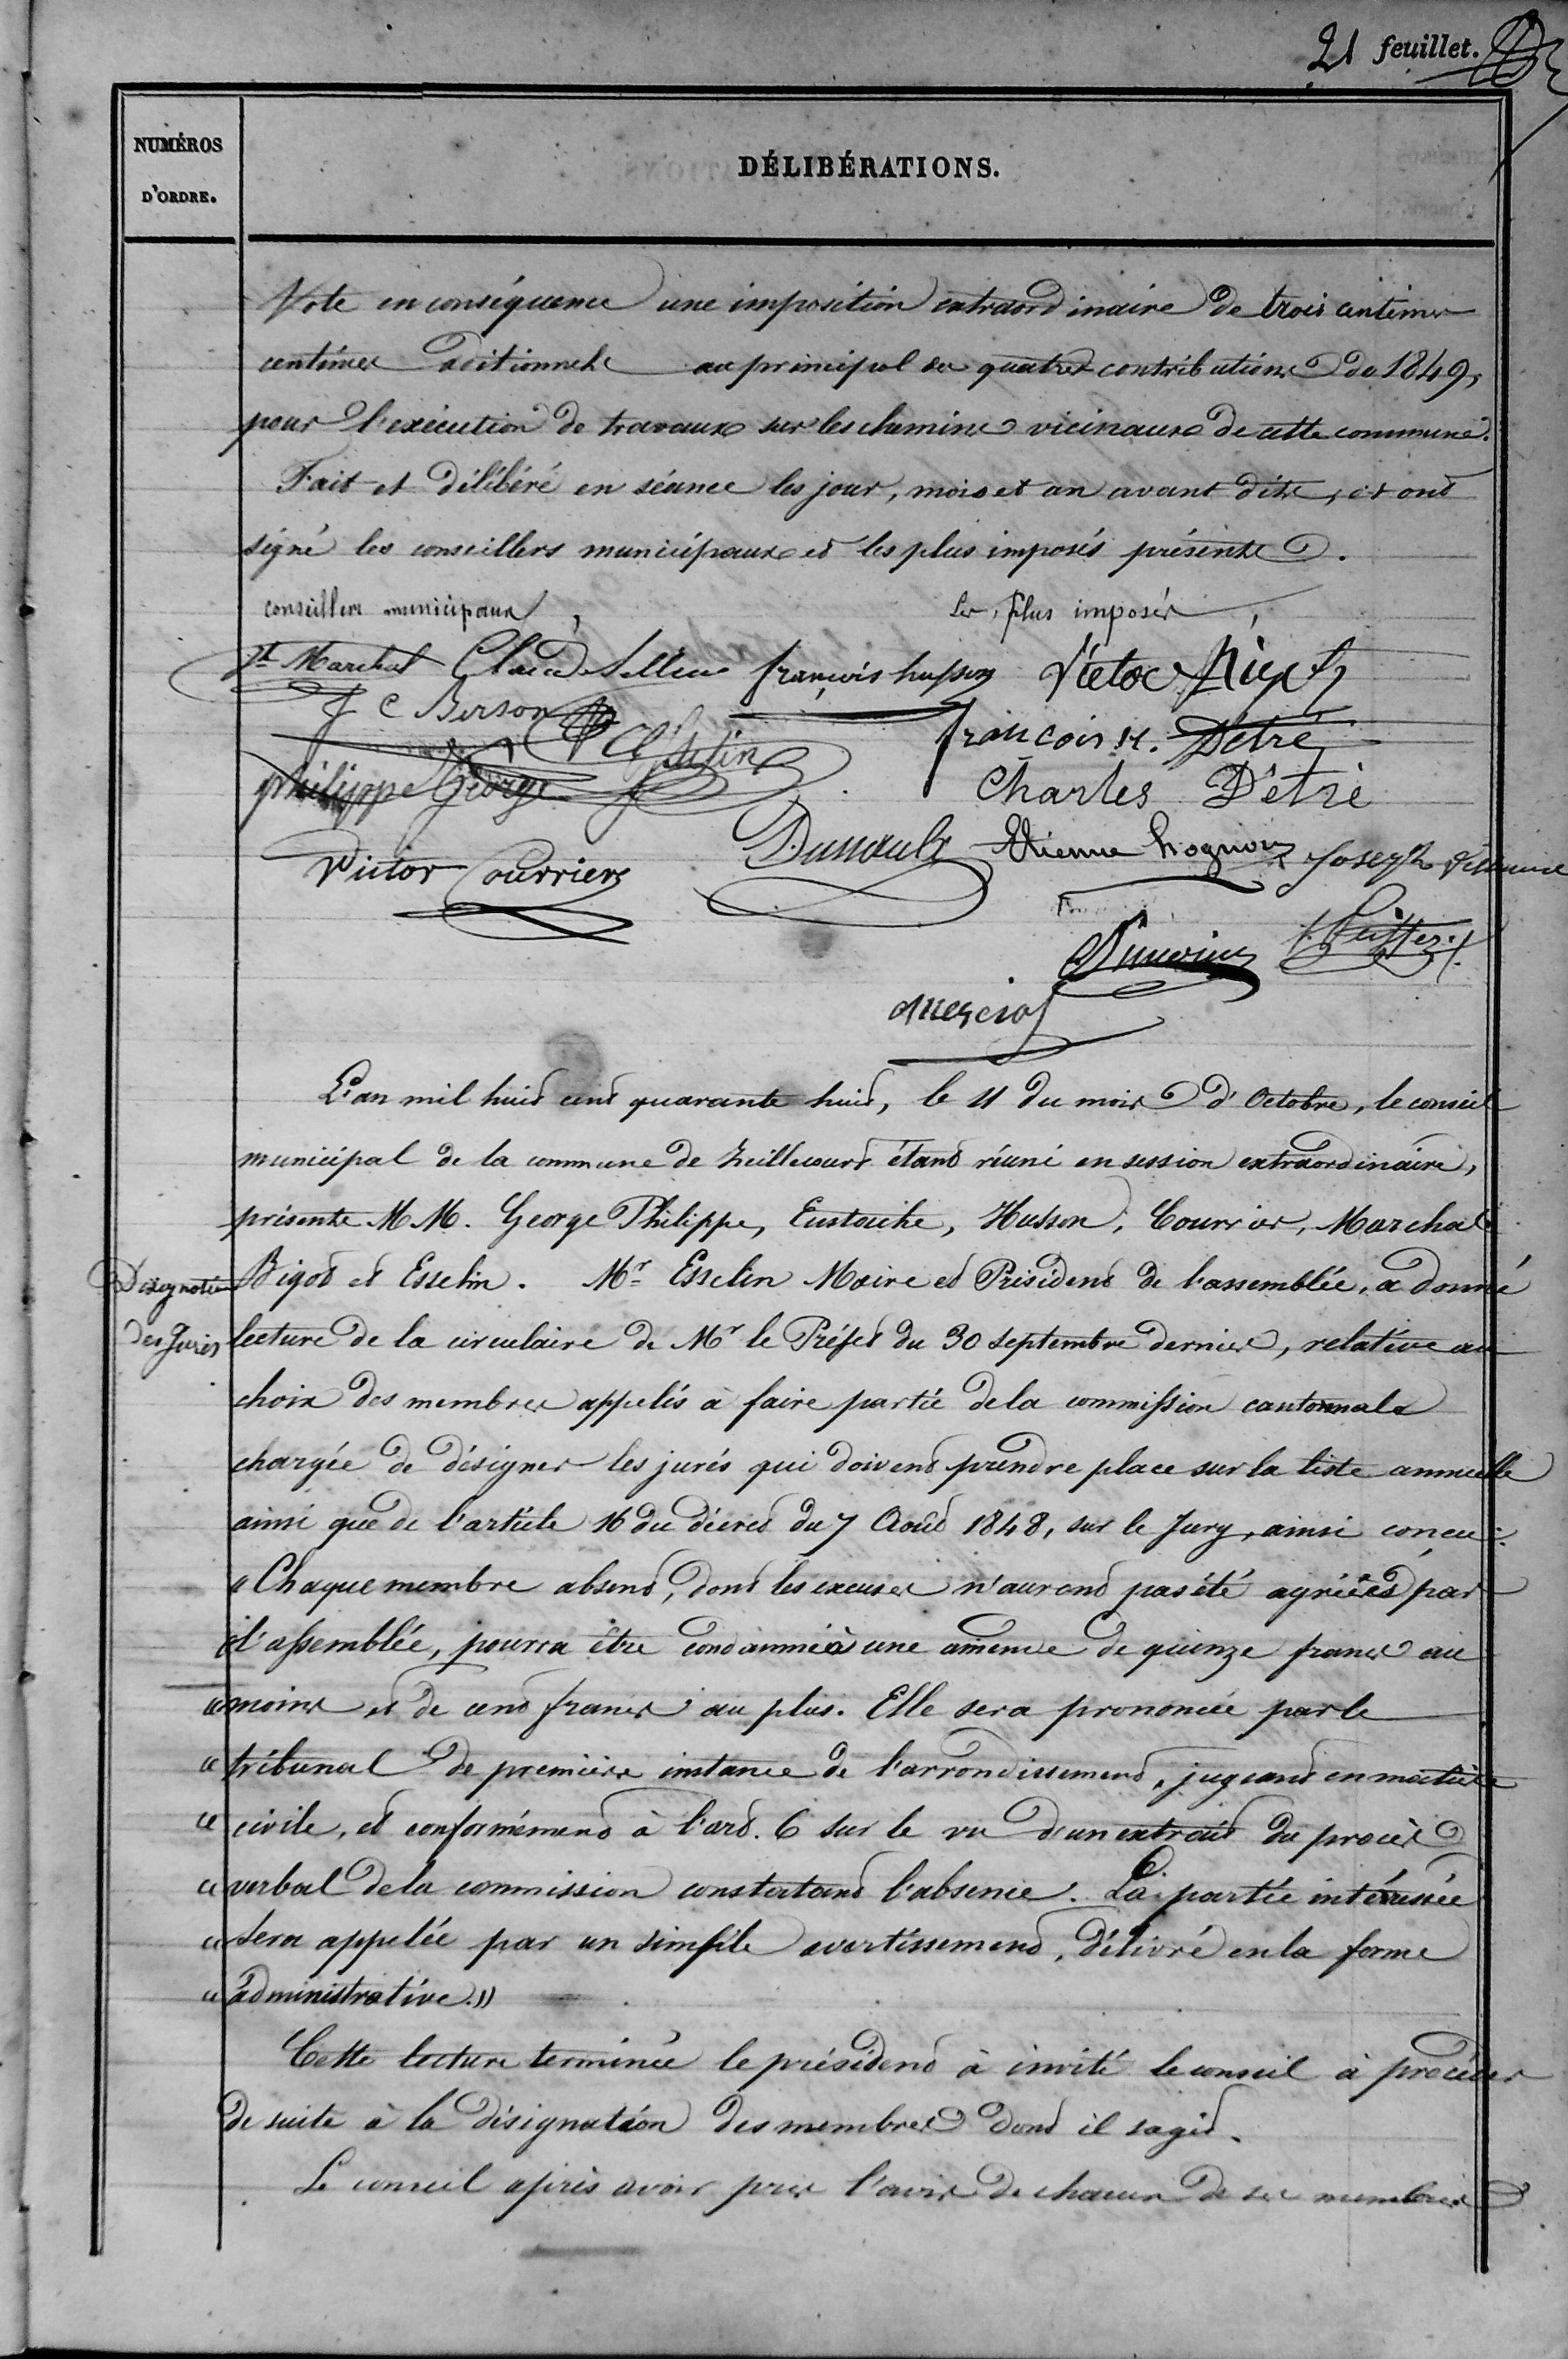 21 feuillet.
NUMÉROS
D'ORDRE.
DÉLIBÉRATIONS.
Vote en conséquence une imposition extraordinaire de trois centimes
centimes aditionnels au principal des quatres contributions de 1849,
pour l'exécution de travaux sur les chemins vicinaux de cette commune.
Fait et délibéré en séance les jour, mois et an avant dits, et ont
signé les conseillers municipaux et les plus imposés présents.
conseillers municipaux,
Les plus imposés,
Jh Marchal Claude françois husson Victor
J C Berson
françois H. Détré
philippe George
Charles Détré
Victor Courrier
Etienne hognon Joseph
L'an mil huit cent quarante huit, le 11 du mois d'Octobre, le conseil
municipal de la commune de étant réuni en session extraordinaire,
présents M.M. George Philippe, Eustache, Husson, Courrier, Marchal
Bigot et Esselin. Mr Esselin Maire et Président de l'assemblée, a donné
Désignation
des Jurés
lecture de la circulaire de Mr le Préfet du 30 septembre dernier, relative au
choix des membres appelés à faire partie de la commission cantonnale
chargée de désigner les jurés qui doivent prendre place sur la liste annuelle
ainsi que de l'article 16 du décret du 7 Août 1848, sur le Jury, ainsi conçu :
« Chaque membre absent, dont les excuses n'auront pas été agréées par
« l'assemblée, pourra être condamné à une amende de quinze francs au
« moins et de cent francs au plus. Elle sera prononcée par le
« tribunal de première instance de l'arrondissement, jugeant en matière
« civile, et conformément à l'art. 6 sur le vu d'un extrait du procès
« verbal de la commission constatant l'absence. La partie intéressée
« sera appelée par un simple avertissement, délivré en la forme
« administrative. »
Cette lecture terminée le président à invité le conseil à procéder
de suite à la désignation des membres dont il sagit.
Le conseil après avoir pris l'avis de chacun de ses membres